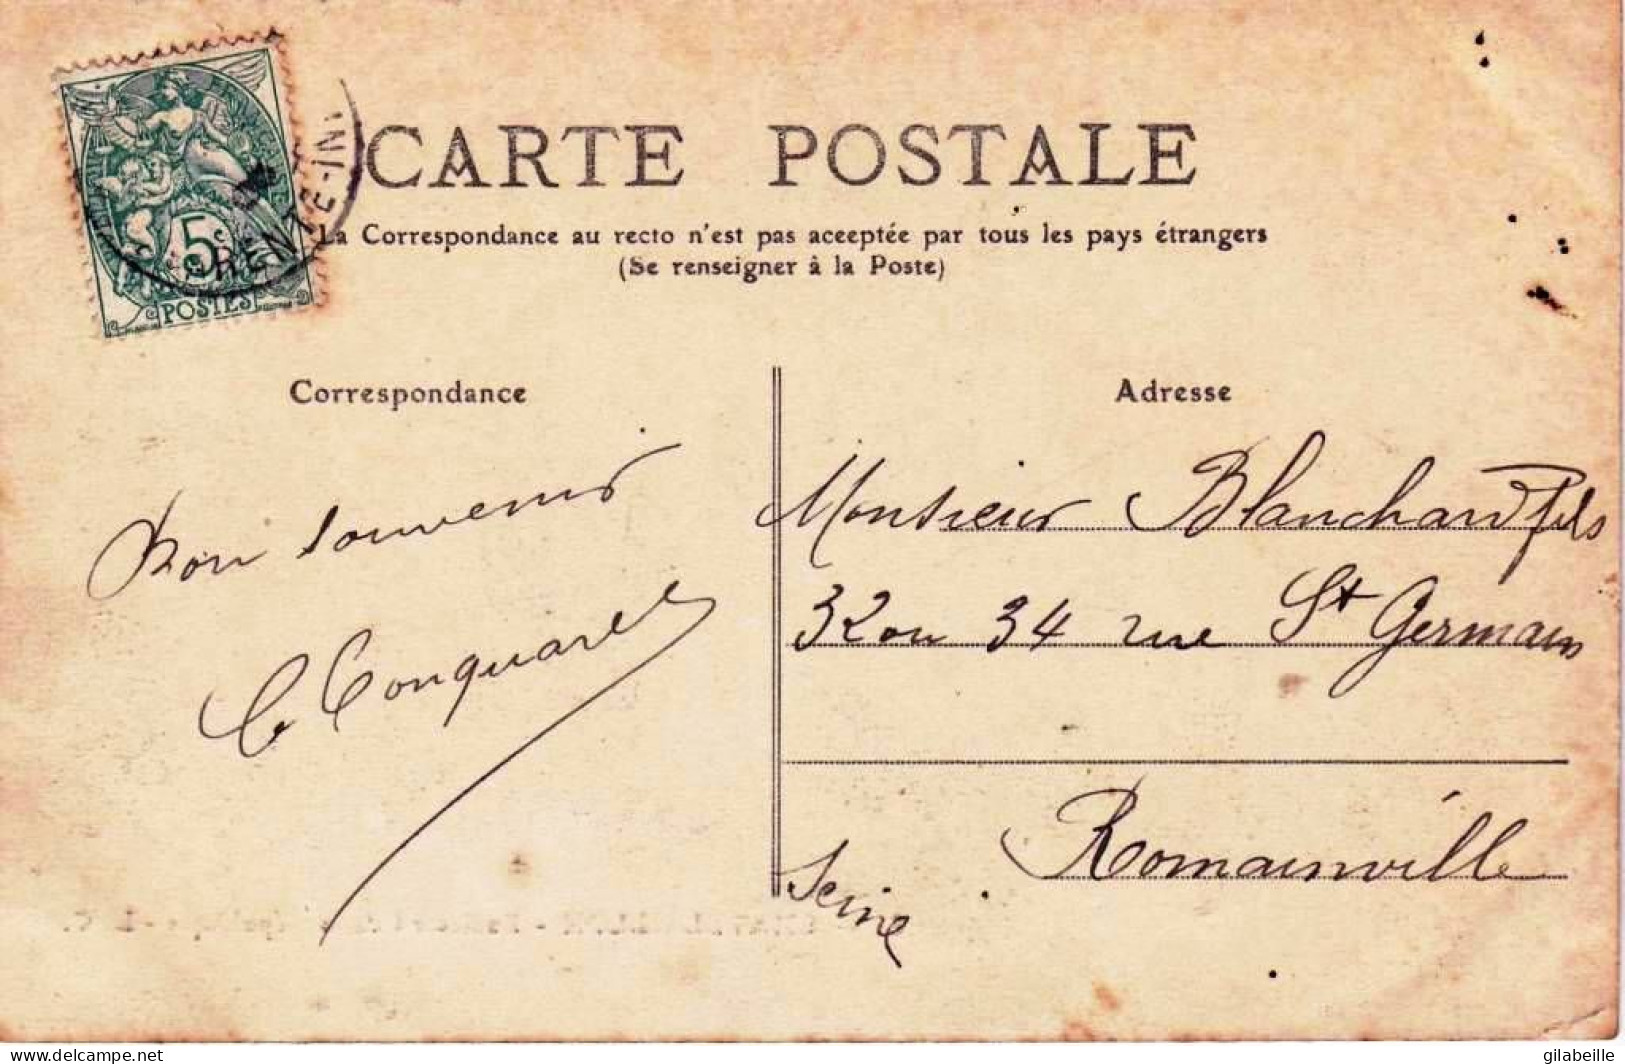 CARTE POSTALE
La Correspondance au recto n'est pas aceeptée par tous les pays étrangers
(Se renseigner à la Poste)
5c
POSTES
RENTE-IN
Correspondance
Bon souvenir
Adresse
Monsieur Blanchard fils
32 ou 34 rue St Germain
Romainville
Seine
delcampe.net
gilabeille